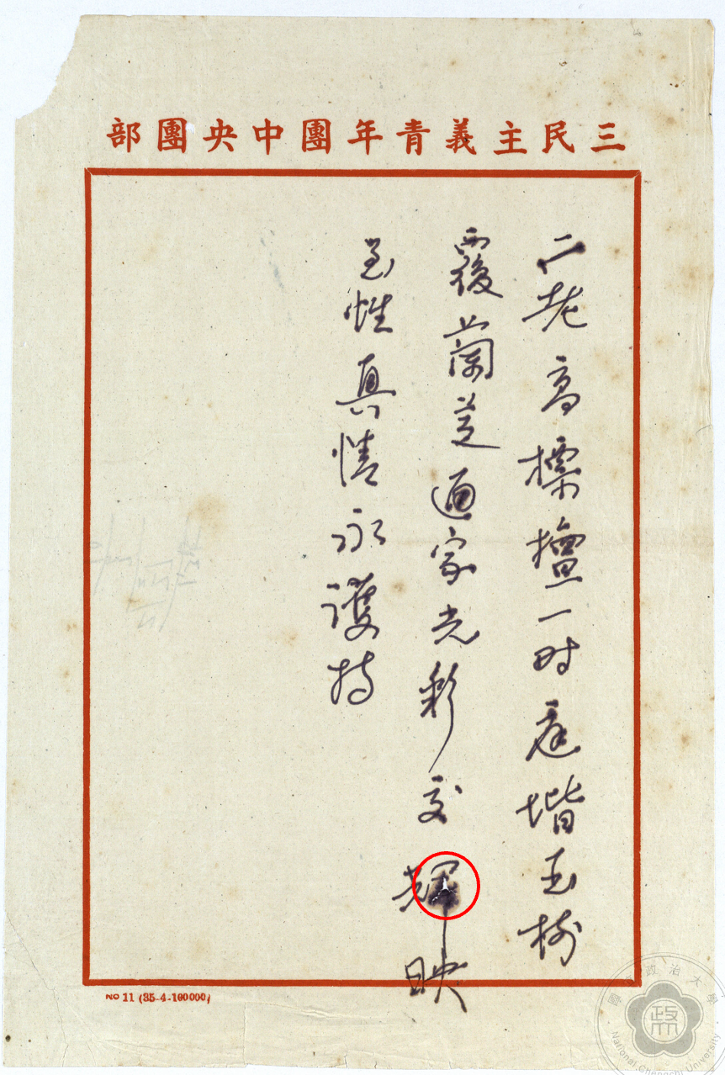 三民主義青年團中央團部
二老高標擅一时庭堦玉樹
覆蘭芝通家光彩交輝映
至性真情永護持
NO 11 (35-4-100000)
政治大學
政
National Chengchi University